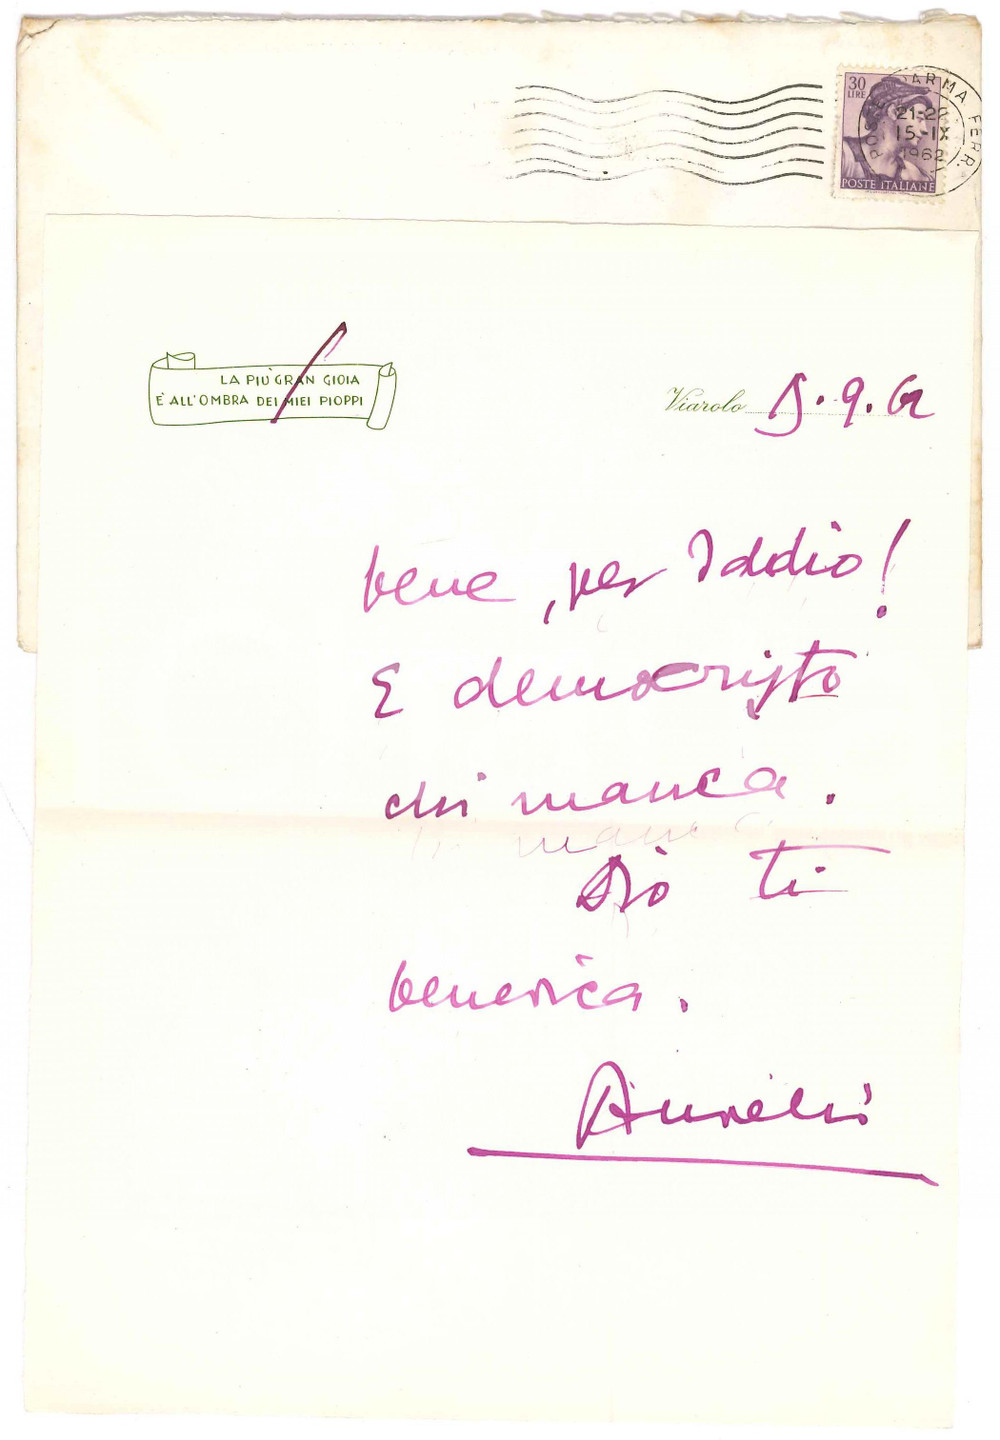 30
LIRE
PARMA FERR.
21-22
15-IX
1962
POSTE ITALIANE
LA PIÙ GRAN GIOIA
È ALL'OMBRA DEI MIEI PIOPPI
Viarolo 15.9.62
bene, per Iddio!
E democristo
chi manca.
Dio ti
benedica.
Aurelio